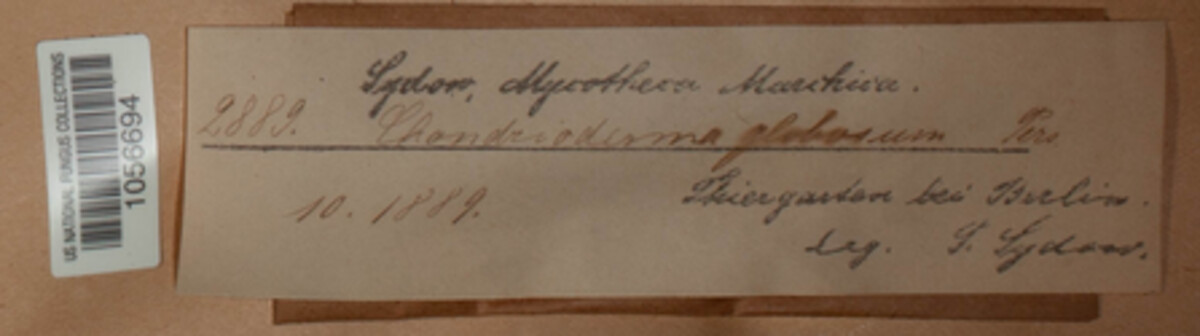 US NATIONAL FUNGUS COLLECTIONS
1056694
Sydow, Mycotheca Marchica.
2889. Chondrioderma globosum Pers
10. 1889.
Thiergarten bei Berlin.
leg. P. Sydow.